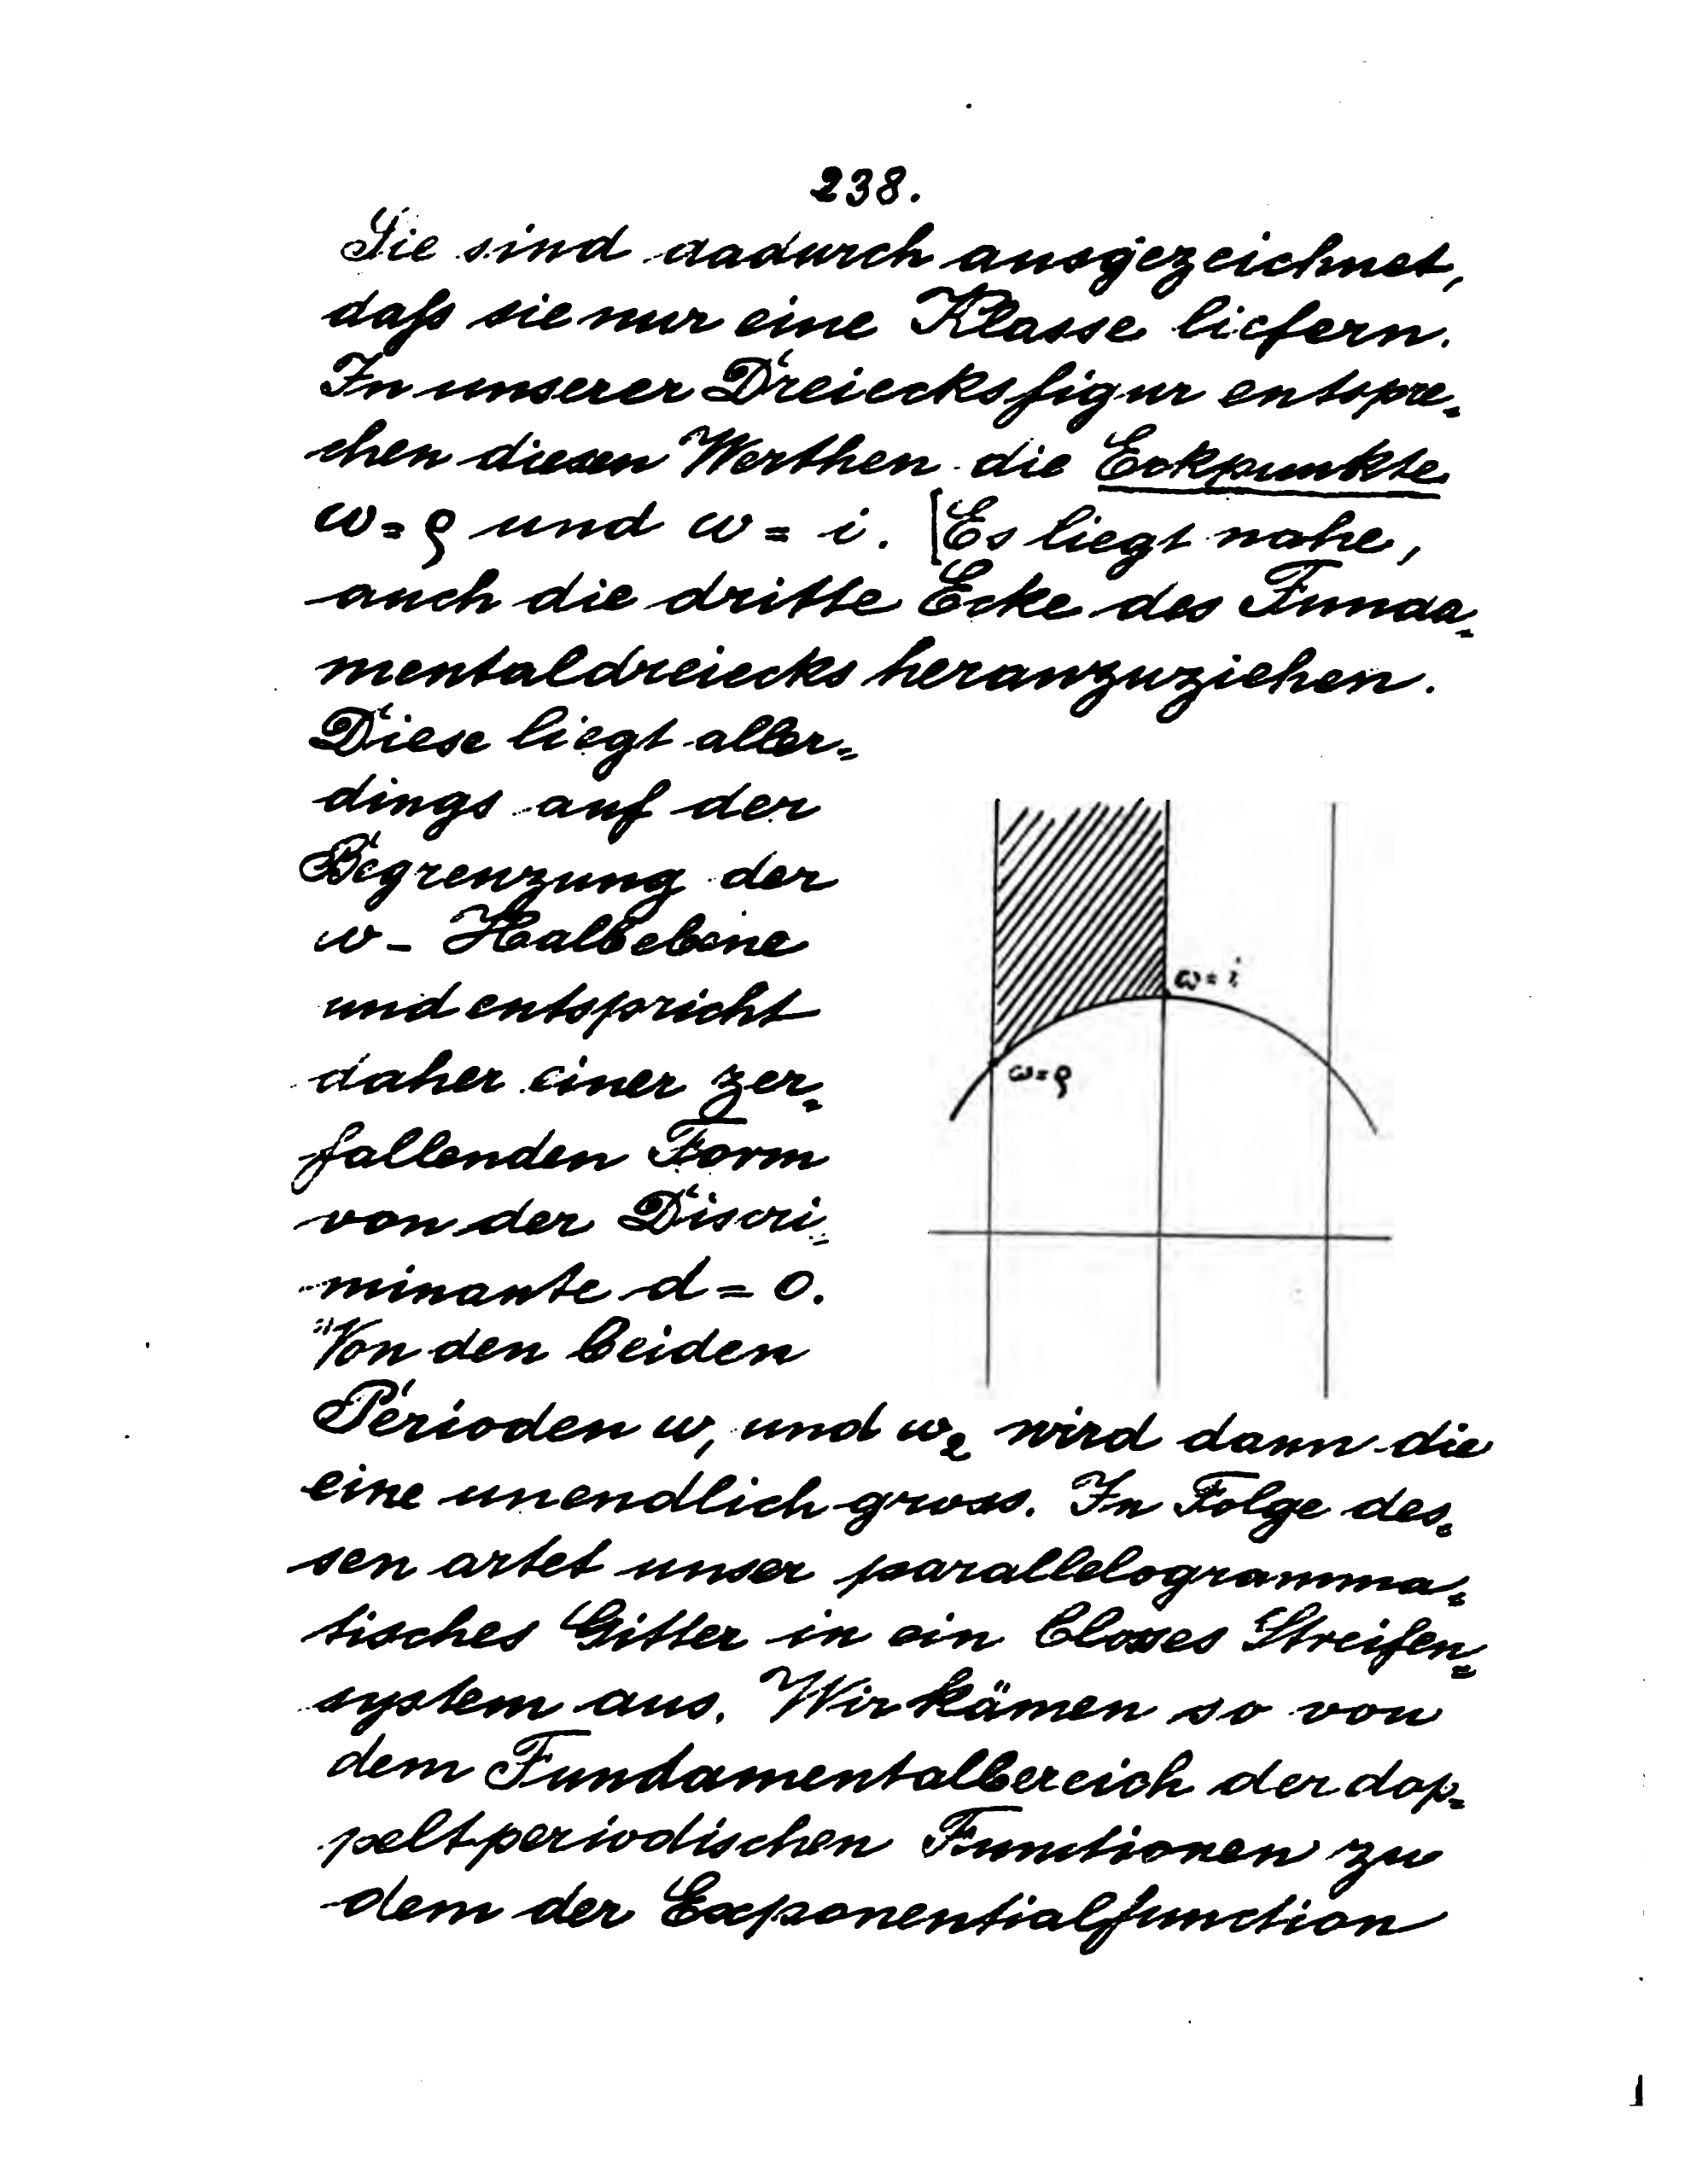 238.
Sie sind dadurch ausgezeichnet,
daß sie nur eine Klasse liefern.
In unserer Dreiecksfigur entspre=
chen diesen Werthen die Eckpunkte
ω = ϱ und ω = i. [Es liegt nahe,
auch die dritte Ecke des Funda=
mentaldreiecks heranzuziehen.
Diese liegt aller=
dings auf der
Begrenzung der
ω - Halbebene
und entspricht
daher einer zer=
fallenden Form
von der Discri=
minante d = 0.
Von den beiden
ω = i
ω = ϱ
Perioden ω₁ und ω₂ wird dann die
eine unendlich gross. In Folge des=
sen artet unser parallelogramma=
tisches Gitter in ein blosses Streifen=
system aus. Wir kämen so von
dem Fundamentalbereich der dop=
peltperiodischen Functionen zu
dem der Exponentialfunction